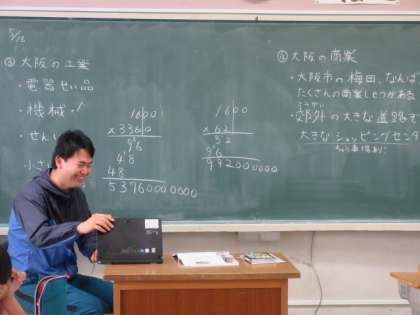 5/13
③大阪の工業
・電器せい品
・機械・
・せんい
小さ
1600
×3360
96
48
48
5376000000
1600
×62
32
96
992000000
④大阪の商業
・大阪市の梅田、なんば
たくさんの商業しせつがある
こうがい
・郊外の大きな道路
大きなショッピングセンタ